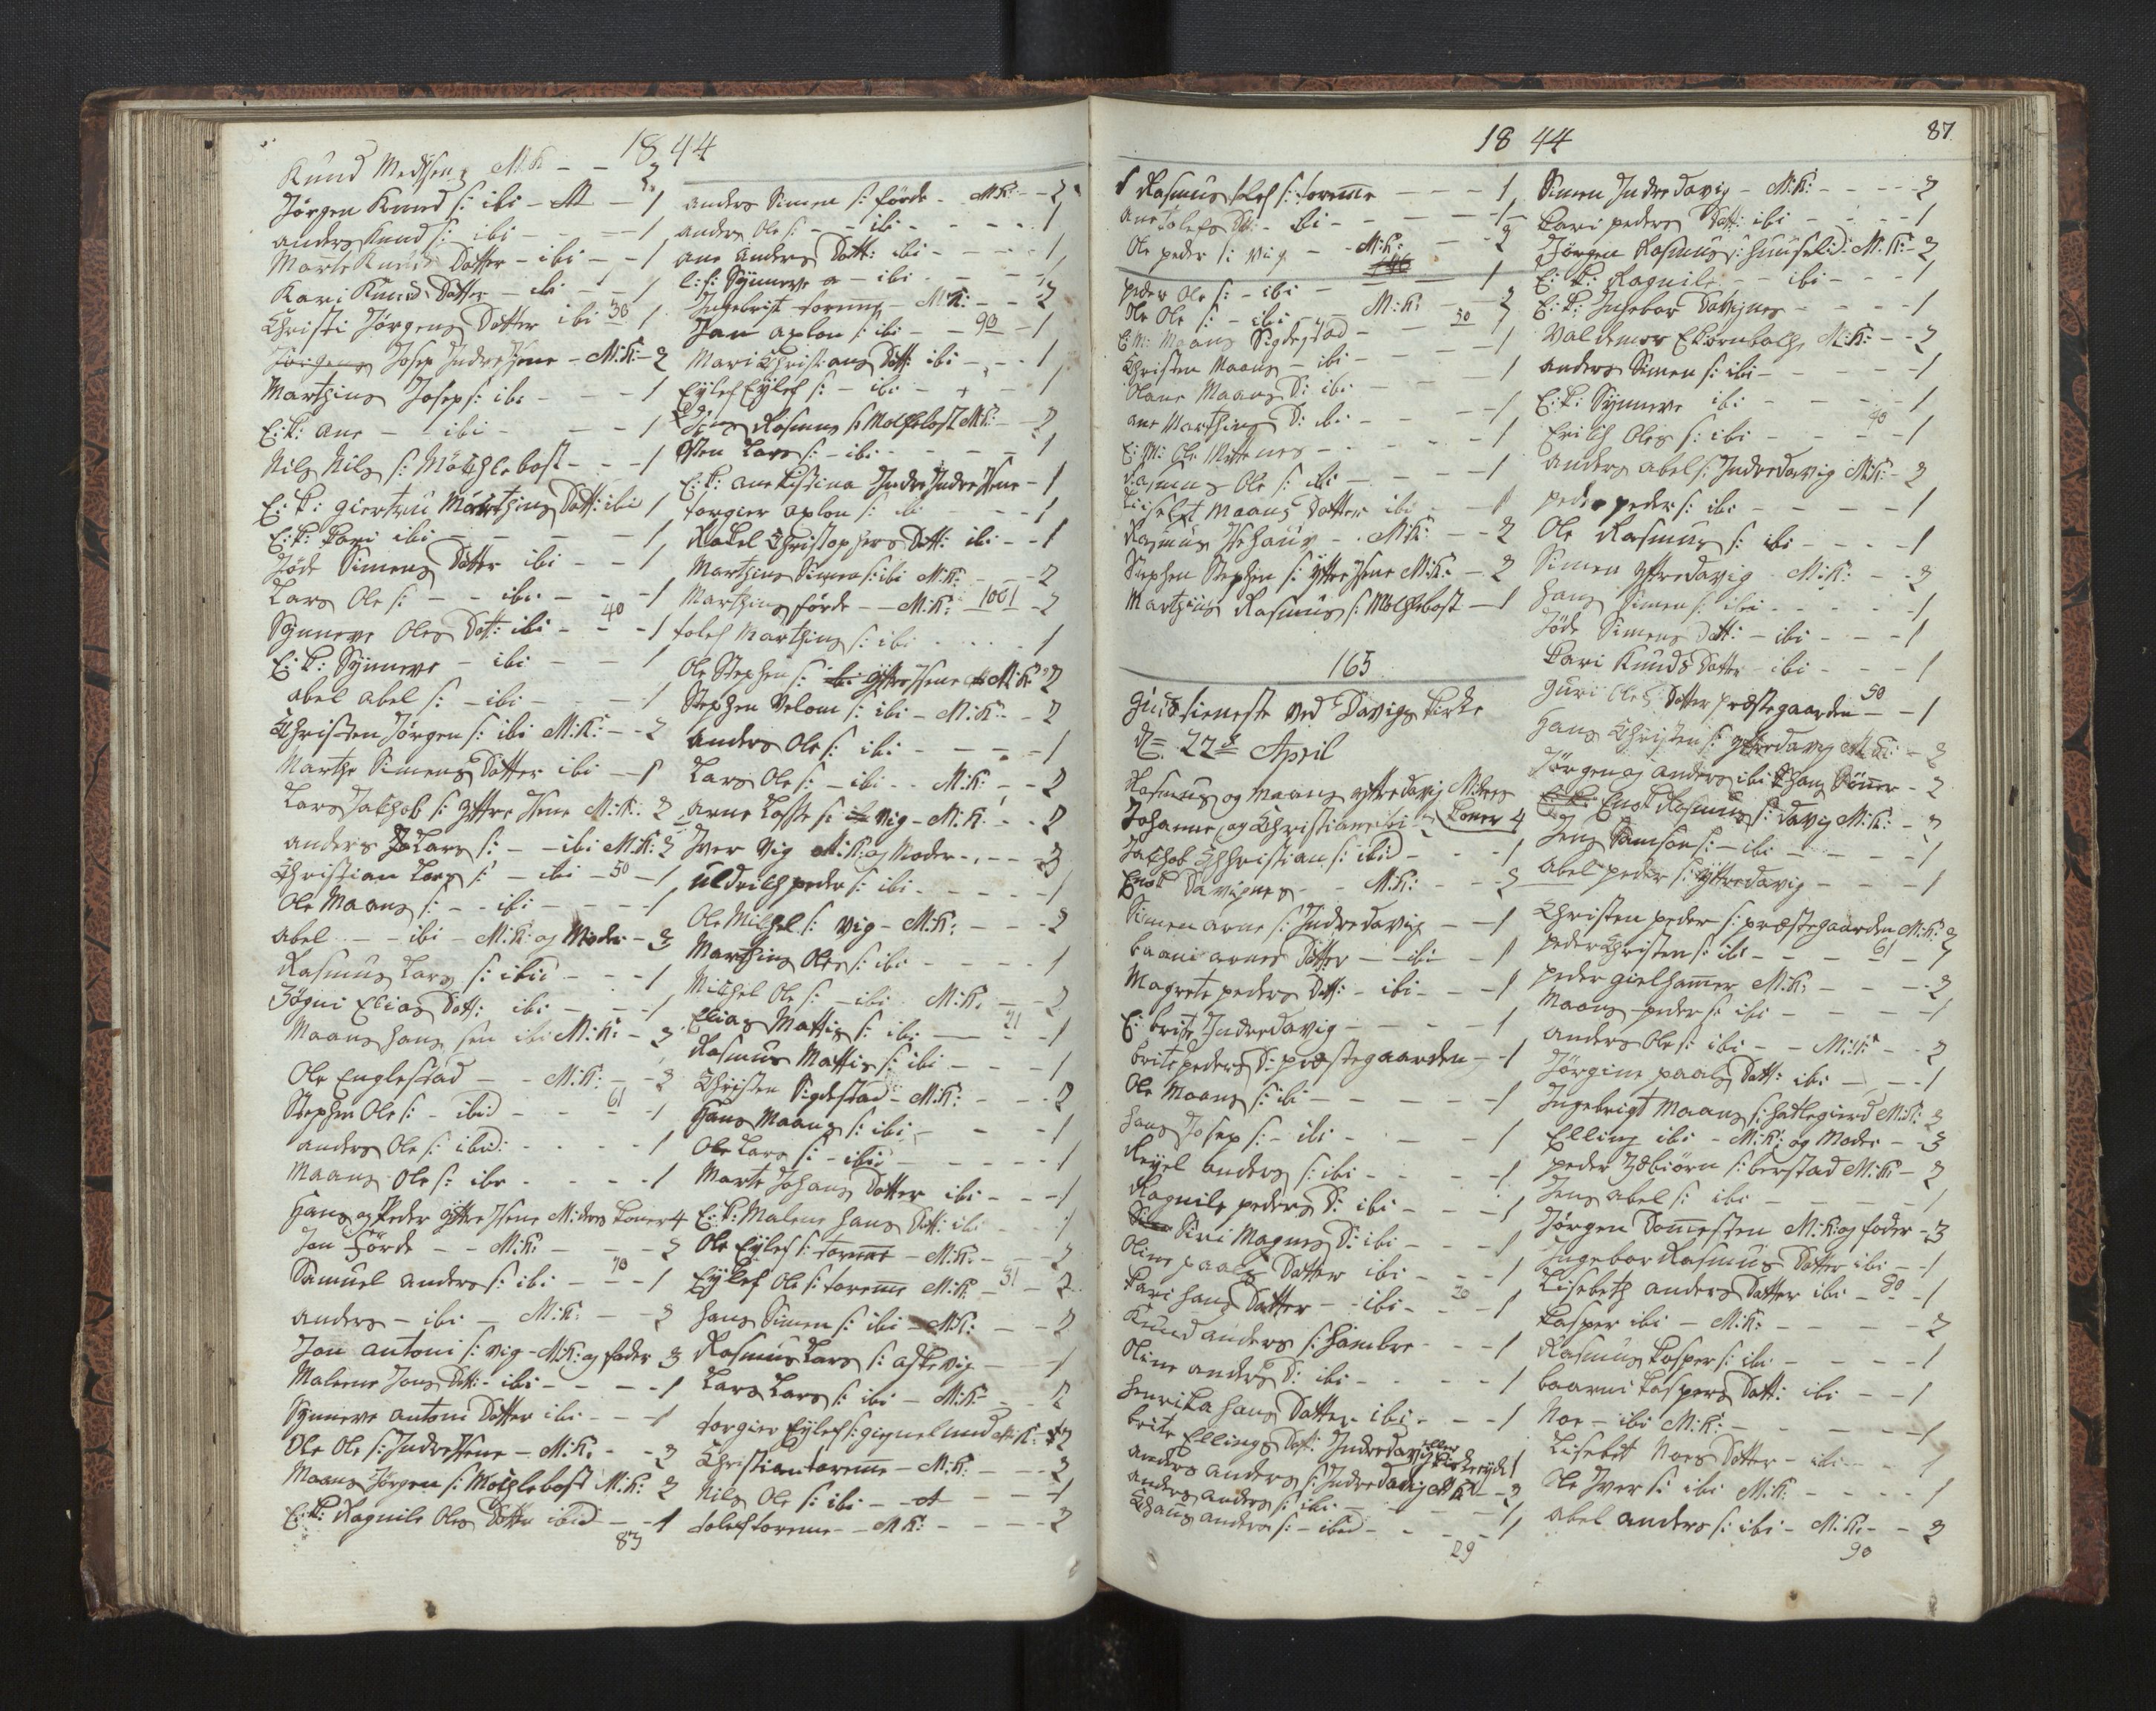 1844
Kund Madsen M:K: - - 2
Jörgen Knud s: ibi - - 1
anders Knud s: ibi - - 1
Marte Knuds Datter - ibi - - 1
Kari Knuds Datter - ibi - - 1
Christi Jörgens Datter ibi 30 1
Josep Indre Hene - M:K: - 2
Marthins Joseps: ibi - - - 1
E: K: ane - - ibi - - - 1
Nils Nils s: Mötchlebost - - - 1
E: K: giertru Marthins Datt: ibi 1
E: K: Kari ibi - - - 1
Jöde Simens Datter ibi - - 1
Lars Ole s: - - ibi - - - 1
Synneve Oles Dat: ibi - 40 - 1
E: K: Synneve - ibi - - 1
abel abel s: - ibi - - - 1
Christen Jörgen s: ibi M:K: - - 2
Marthe Simens Datter ibi - 1
Lars Jakhob s: Yttre Hene M:K: 2
anders Lars s: - - ibi M:K: 2
Christian Lars s: - ibi - 50 - 1
Ole Maans s: - - ibi - - - 1
abel - - ibi - M:K: og Moder - 3
Rasmus Lars s: ibid - - - 1
Jögni Elias Datt: ibi - - - 1
Maans Hans sen ibi M:K: - 2
Ole Englestad - - M:K: - - 2
Stephen Ole s: - ibid - - 61 - 1
anders Ole s: ibid: - - - - 1
Maans Ole s: ibi - - - - 1
Hans og Peder Yttre Hene M: deres Koner 4
Jon Förde - - M:K: - - - 2
Samuel anders s: ibi - 70 - 1
anders - ibi - M:K: - - 2
Jon antoni s: Vig - M:K: og fader 3
Malene Jons Datt: - ibi - - - - 1
Synneve antoni Datter ibi - - - 1
Ole Ole s: Indre Hene - M:K: - - 2
Maans Jörgen s: Mötchlebost M:K: 2
E: K: Ragnile Oles Datter ibid - - 1
83
anders Simen s: förde - M:K: - - 2
anders Ole s: - - ibi - - - - 1
ane anders Datt: ibi - - - - 1
E: K: Synneve - ibi - - - 1
Ingebrit toreme - M:K: - - 2
Jon aplon s: ibi - - 90 - 1
Mari Christians Datt: ibi - - - 1
Eylef Eylef s: - ibi - - - 1
Rasmus s: Molchlebost M:K: - - 2
Sten Lars s: - ibi - - - - 1
E: K: ane Kistina Indre Hene - 1
torgier aplon s: ibi - - - 1
Rakel Christophers Datt: ibi - - 1
Marthins Simen s: ibi M:K: - - 2
Marthins förde - - M:K: 1001 - 2
tolef Marthins s: ibi - - - - 1
Ole Stephen s: Yttre Hene M:K: 2
Stephen Velom s: ibi - M:K: - - 2
anders Ole s: ibi - - - - - 1
Lars Ole s: - ibi - - M:K: - - 2
arne Lasse s: Vig - M:K: - - 2
Iver Vig M:K: og Moder - - - 3
Uldrich peder s: ibi - - - - - 1
Ole Michel s: Vig - M:K: - - - 2
Marthins Oles s: ibi - - - - 1
Michel Ole s: - ibi - M:K: - - 2
Elias Mattis s: ibi - 21 - 1
Rasmus Mattis s: ibi - - - 1
Christen Sigdestad - M:K: - - - 2
Hans Maans s: ibi - - - - 1
Ole Lars s: - ibid - - - - - 1
Marte Johans Datter ibi - - - 1
E: K: Malene Hans Datt: ibi - - 1
Ole Eylef s: toreme - M:K: - - 2
Eylef Ole s: toreme M:K: - 31 - 2
Hans Simen s: ibi - M:K: - - 2
Rasmus Lars s: Askevig - - - 1
Lars Lars s: ibi - M:K: - - 2
torgier Eylef s: gignelund M:K: - 2
Christian toreme - M:K: - - - 2
Nils Ole s: ibi - - - - - 1
tolef toreme - - M:K: - - - - 2
1844
87
Rasmus tolef s: toreme - - - - 1
ane tolefs Dt: - ibi - - - - 1
Ole peder s: Vig - - M:K: - - 2
peder Ole s: - ibi - - - 1
Ole Ole s: - ibi - M:K: - - 2
E: M: Maans Sigdestad - 50 - 1
Christen Maans - ibi - - - - 1
Olane Maans D: ibi - - - 1
ane Marthins D: ibi - - - - 1
E: M: Ole Mittenes - - - - 1
Rasmus Ole s: ibi - - - - 1
Liisebet Maans Datter ibi - - 1
Rasmus Hehauv - - M:K: - - 2
Stephen Stephen s: Yttre Hene M:K: - 2
Marthins Rasmus s: Molchlebost - 1
165
Gudstieneste ved Davigs Kirke
d: 22d April
Rasmus og Maans yttre davig M: deres
Johanne og Christiane ibi Koner 4
Jakhob Christian s: ibid - - - 1
Enok Davignes - - M:K: - - 2
Simen arne s: Indre davig - - 1
baani arnes Datter - - ibi - 1
Magrete peders Dt: - ibi - - - 1
E: brite Indre davig - - - - 1
brite peders D: præstegaarden - - 1
Ole Maans s: ibi - - - - - 1
Hans Josep s: - ibi - - - 1
Reyel anders s: ibi - - - - 1
Ragnile peders D: ibi - - - 1
Siri Magnes D: ibi - - - 1
Oline paals Datter ibi - - - 1
Kari Hans Datter - - ibi - 20 - 1
Knud anders s: Hambre - - - 1
Oline anders D: ibi - - - - 1
Henrika Hans Datter - ibi - - - 1
brite Ellings Dat: Indre davig eller Kierkeeyde 1
anders anders s: Indre davig M:K: - - 2
anders anders s: ibi - - - - 1
Chans anders s: - ibid - - - - 1
29
Simen Indre davig - M:K: - - - - 2
Kari peders Datt: ibi - - - - 1
Jörgen Rasmus s: Huuselid: M:K: - 2
E: K: Ragnile - - ibi - - - 1
E: K: Ingebor Davignes - - - - 1
Valdemor Ekornbolh M:K: - - 2
anders Simen s: ibi - - - - - 1
E: K: Synneve ibi - - - - 1
Erich Oles s: ibi - - - 40 - 1
anders abel s: Indre davig M:K: - 2
peder peder s: ibi - - - - - 1
Ole Rasmus s: ibi - - - - 1
Simen Yttre davig - M:K: - - 2
Hans Simen s: ibi - - - - - 1
Jöde Simens Datt: - ibi - - - 1
Kari Knuds Datter - ibi - - - 1
Guri Oles Datter præstegaarden 50 - 1
Hans Christen s: Yttre davig M:K: - 2
Jörgen og anders ibi - 2
Enok Rasmus s: davig M:K: - 2
Jens Samson s: - ibi - - - - 1
abel peder s: Yttre davig - - - 1
Christen peder s: præstegaarden M:K: 2
peder Christen s: ibi - - - 61 - 1
peder gielhamer M:K: - - - 2
Maans peder s: ibi - - - - 1
anders Ole s: ibi - - M:K: - - 2
Jörgine paals Datt: ibi - - - 1
Ingebrigt Maans s: Hatlegierd M:K: 2
Elling ibi - M:K: og Moder - - 3
peder Isbiörn s: berstad M:K: - 2
Jens abel s: ibi - - - - - 1
Jörgen Domesten M:K: og fader - 3
Ingebor Rasmus Datter ibi - - 1
Lisebeth anders Datter ibi - 80 - 1
Kasper ibi - M:K: - - - - - 2
Rasmus Kasper s: ibi - - - - 1
baarni Kaspers Datt: ibi - - 1
Noe - ibi M:K: - - - - 1
Lisebet Noes Datter - ibi - - 1
Ole Iver s: ibi M:K: - - - - 1
abel anders s: ibi - M:K: - - 2
90